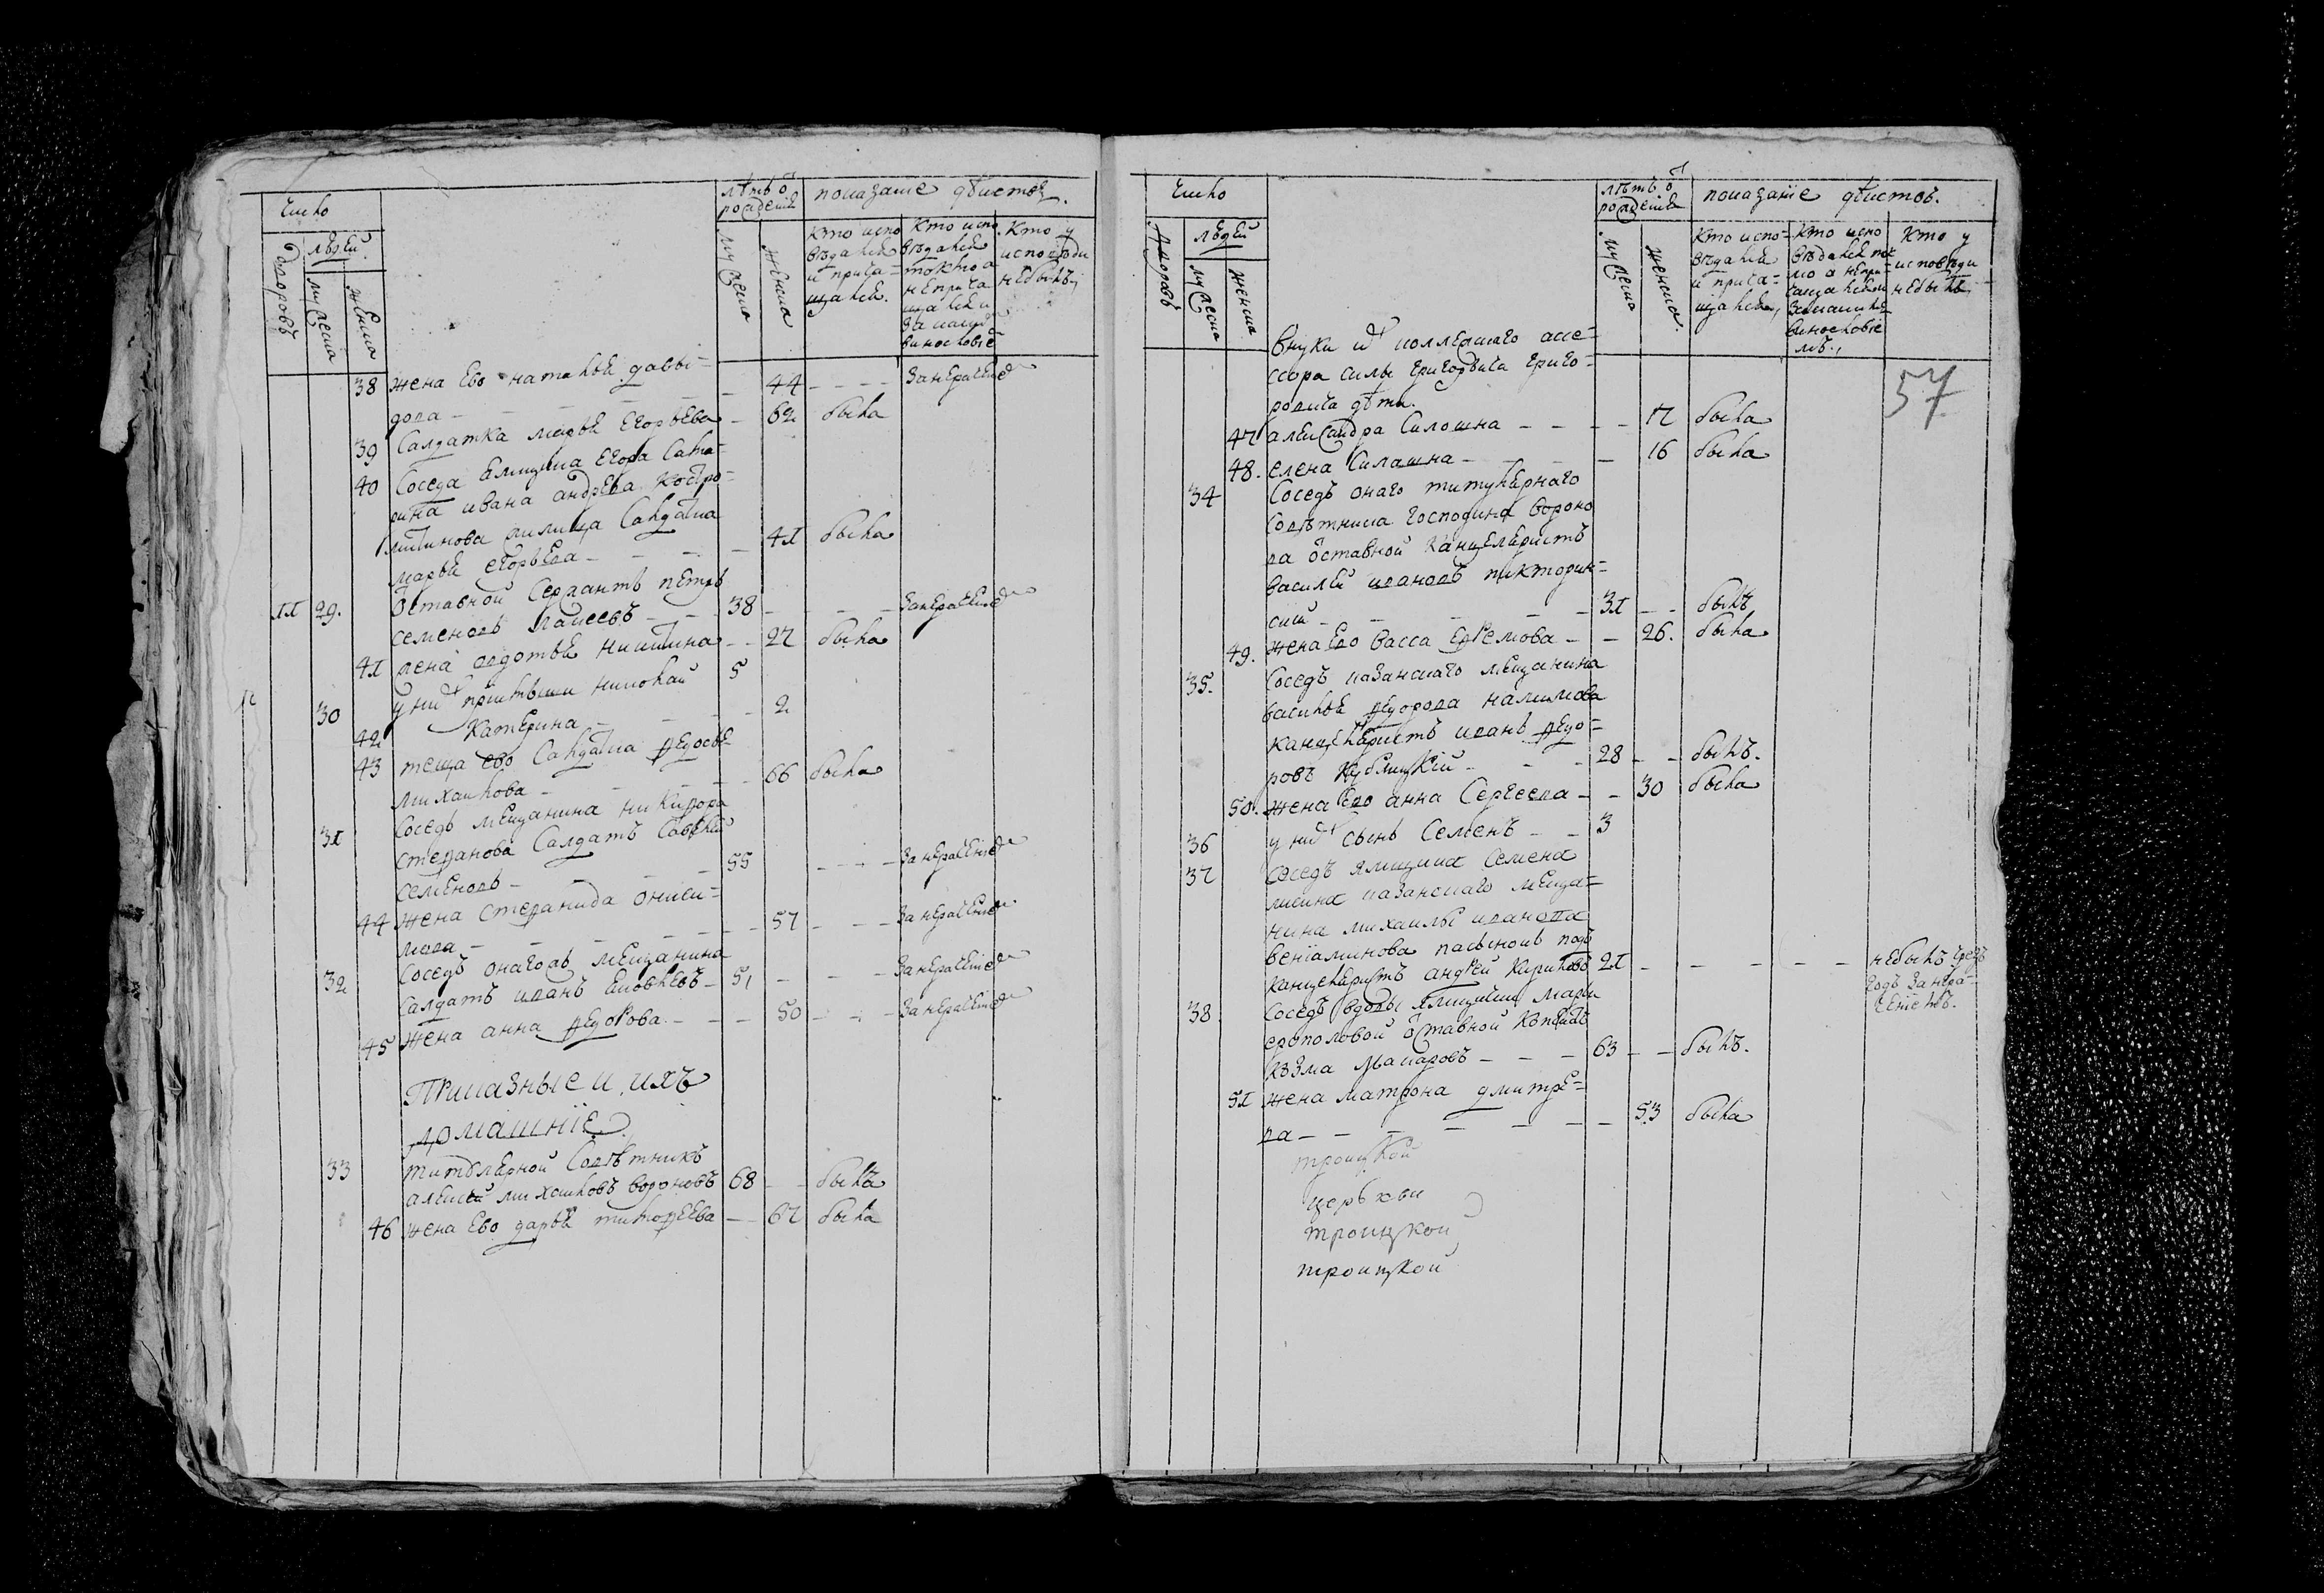 число
лѣтъ ѿ рожденія
показаніе дѣйствъ.
дворовъ
людей
мужеска
женска
мужеска
женска
кто испо
вѣдался
и прича-
щался.
кто испо
вѣдался
токмо а
не прича
щался и
за какимъ
винословіе
кто у
исповѣди
небылъ,
38 жена ево наталья давы-
дова - 44 - за нераченіе
39 Салдатка марья Егорьева - 62 была
40 Соседа Ямщика Егора Сата-
рина ивана андрева костро-
митинова жилица Салдатка
марья егорьева - 41 была
11 29. ѿставной Сержантъ петръ
семеновъ - 38 - за нераченіе
41 жена авдотья никитина - 27 была
30 у них прижитыи николай 5
42 катерина - 2
43 теща ево Салдатка федосья
михаилова - 66 была
31 Соседъ мещанина никифора
степанова Салдатъ Савелей
семеновъ - 55 - за нераченіе
44 жена степанида ониси-
мова - 57 - за нераченіе
32 Соседъ онагожъ мещанина
Салдатъ иванъ Яковлевъ - 51 - за нераченіе
45 жена анна федорова - 50 - за нераченіе
Приказные и ихъ
домашніе
33 титулярной Советникъ
алексей михаиловъ вороновъ 68 - былъ
46 жена ево дарья тимофеева - 67 была
число
лѣтъ ѿ рожденія
показаніе дѣйствъ.
дворовъ
людей
мужеска
женска
мужеска
женска.
кто испо-
вѣдался
и прича-
щался,
кто испо
вѣдался ток
мо а непри-
чащался и
за какимъ
винословіе
мъ.,
кто у
исповѣди
небылъ
57
внуки ихъ коллежскаго ассе-
ссора силы григорьича григо-
ровича дѣти.
47 александра Силошна - 17 была
48. елена Силашна - 16 была
34 Соседъ онаго титулярнаго
Советника господина вороно
ва ѿставной канцеляристъ
василей ивановъ пикторин-
ски - 31 - былъ
49. жена ево васса ефремова - 26. была
35. Соседъ казанскаго мещанина
василья федорова
канцеляристъ иванъ федо-
ровъ - 28 - былъ.
50. жена ево анна Сергеева - 30 была
36 у них сынъ Семенъ - 3
37 соседъ Ямщика семена
казанскаго меща-
нина михаилы иванова
веніаминова пасынокъ под
канцеляристъ андрей кириловъ 21 - небылъ чрезъ
годъ за нера-
ченіемъ.
38 Соседъ вдовы Ямщицы марьи
ѿставной
козма макаровъ - 63 - былъ.
51 жена матрона дмитре-
ва - 53 была
троицкой
церькви
троицкой
троицкой